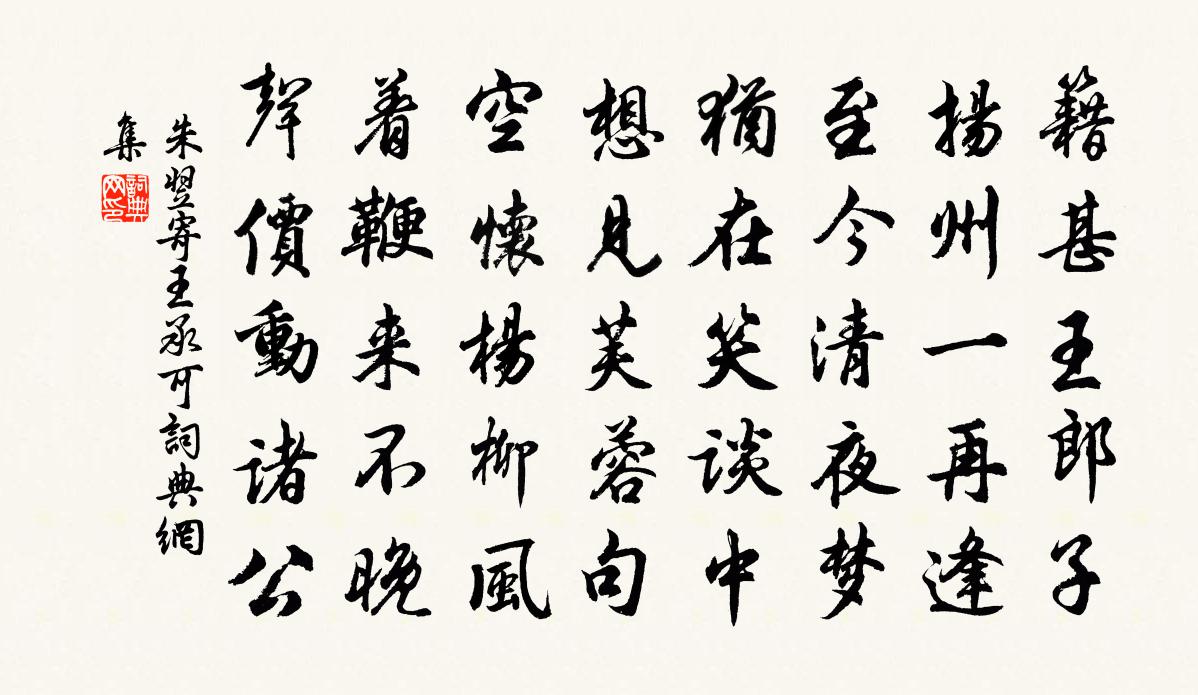 籍甚王郎子
揚州一再逢
至今清夜梦
猶在笑談中
想見芙蓉句
空懷楊柳風
着鞭来不晚
聲價動諸公
朱翌寄王承可詞典網
集
詞典
网印